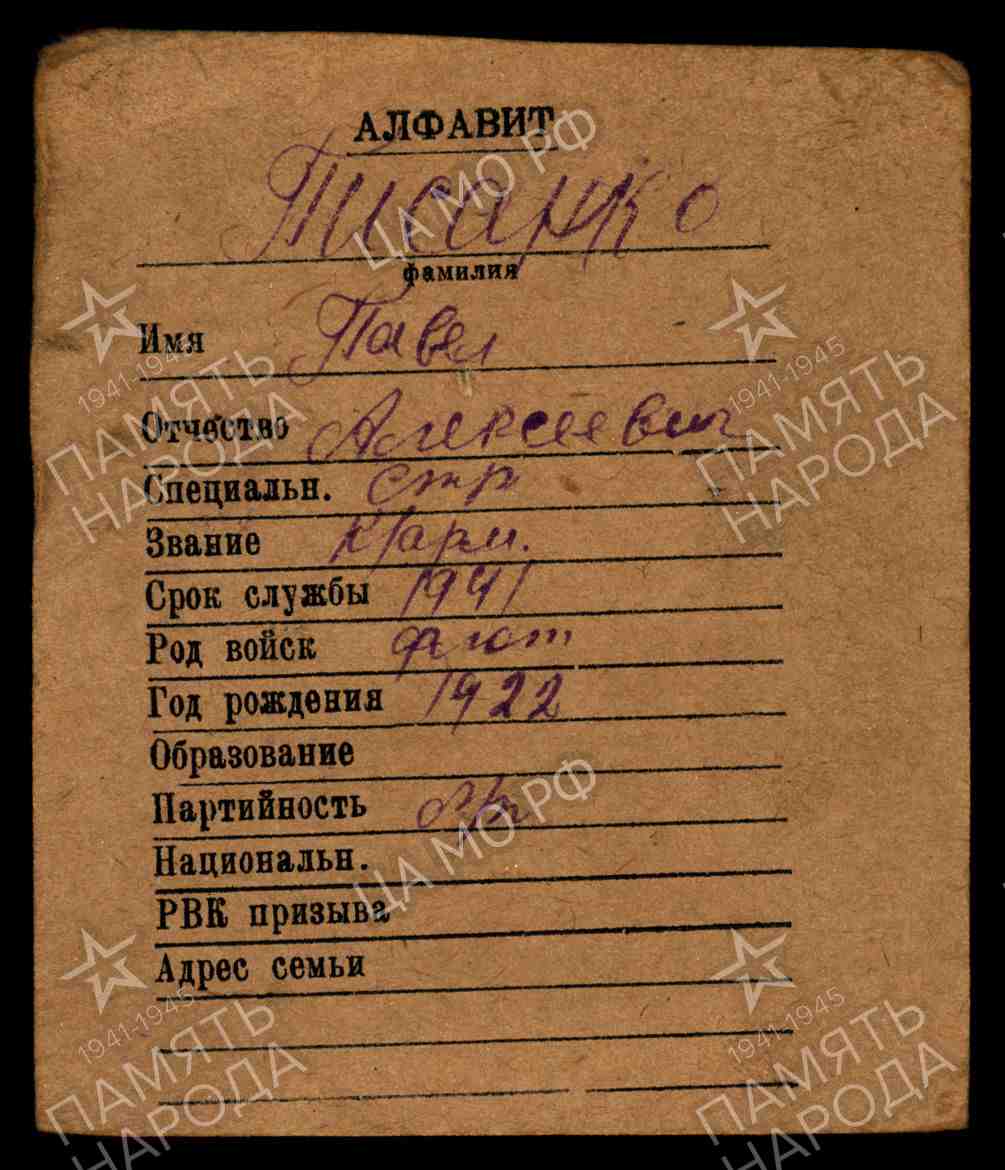 АЛФАВИТ
Писанко
фамилия
Имя Павел
Отчество Алексеевич
Специальн. стр
Звание к/арм.
Срок службы 1941
Род войск флот
Год рождения 1922
Образование
Партийность б/п
Национальн.
РВК призыва
Адрес семьи
ЦА МО РФ
1941-1945
ПАМЯТЬ
НАРОДА
1941-1945
ПАМЯТЬ
НАРОДА
ЦА МО РФ
1941-1945
ПАМЯТЬ
НАРОДА
1941-1945
ПАМЯТЬ
НАРОДА